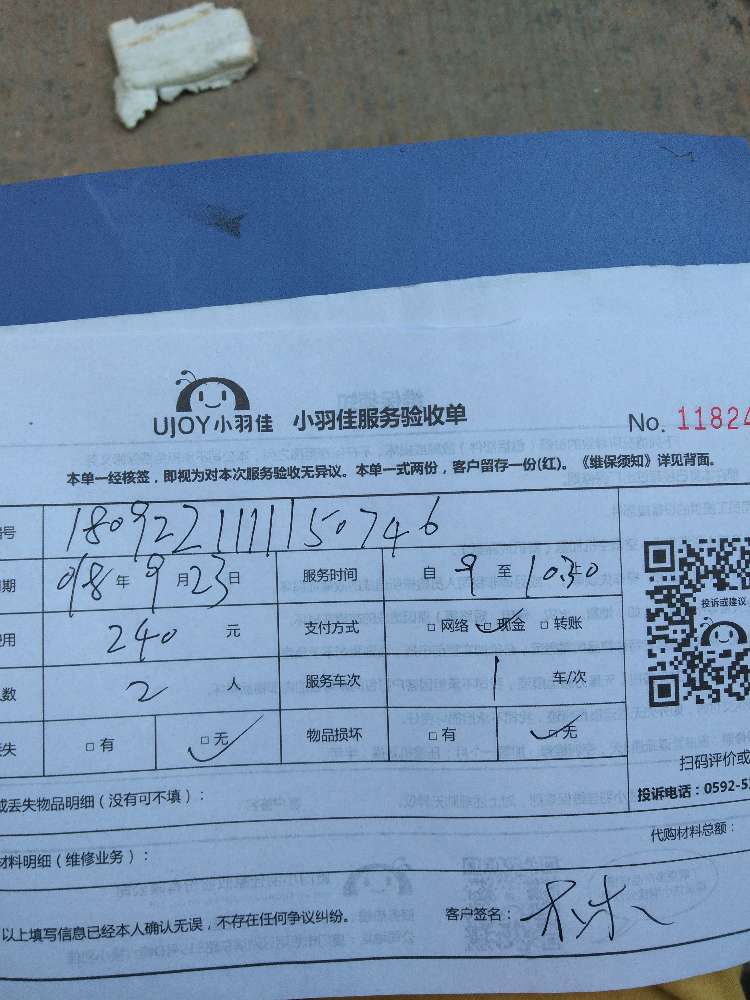 UJOY小羽佳 小羽佳服务验收单
No. 11824
本单一经核签，即视为对本次服务验收无异议。本单一式两份，客户留存一份(红)。《维保须知》详见背面。
号 180922111150746
期 018年9月23日 服务时间 自9至1030止
用 240元 支付方式 □网络 ☑现金 □转账
人数 2人 服务车次 1车/次
丢失 □有 ☑无 物品损坏 □有 ☑无
投诉或建议
扫码评价或
投诉电话：0592-5
或丢失物品明细（没有可不填）：
代购材料总额：
材料明细（维修业务）：
以上填写信息已经本人确认无误，不存在任何争议纠纷。 客户签名：